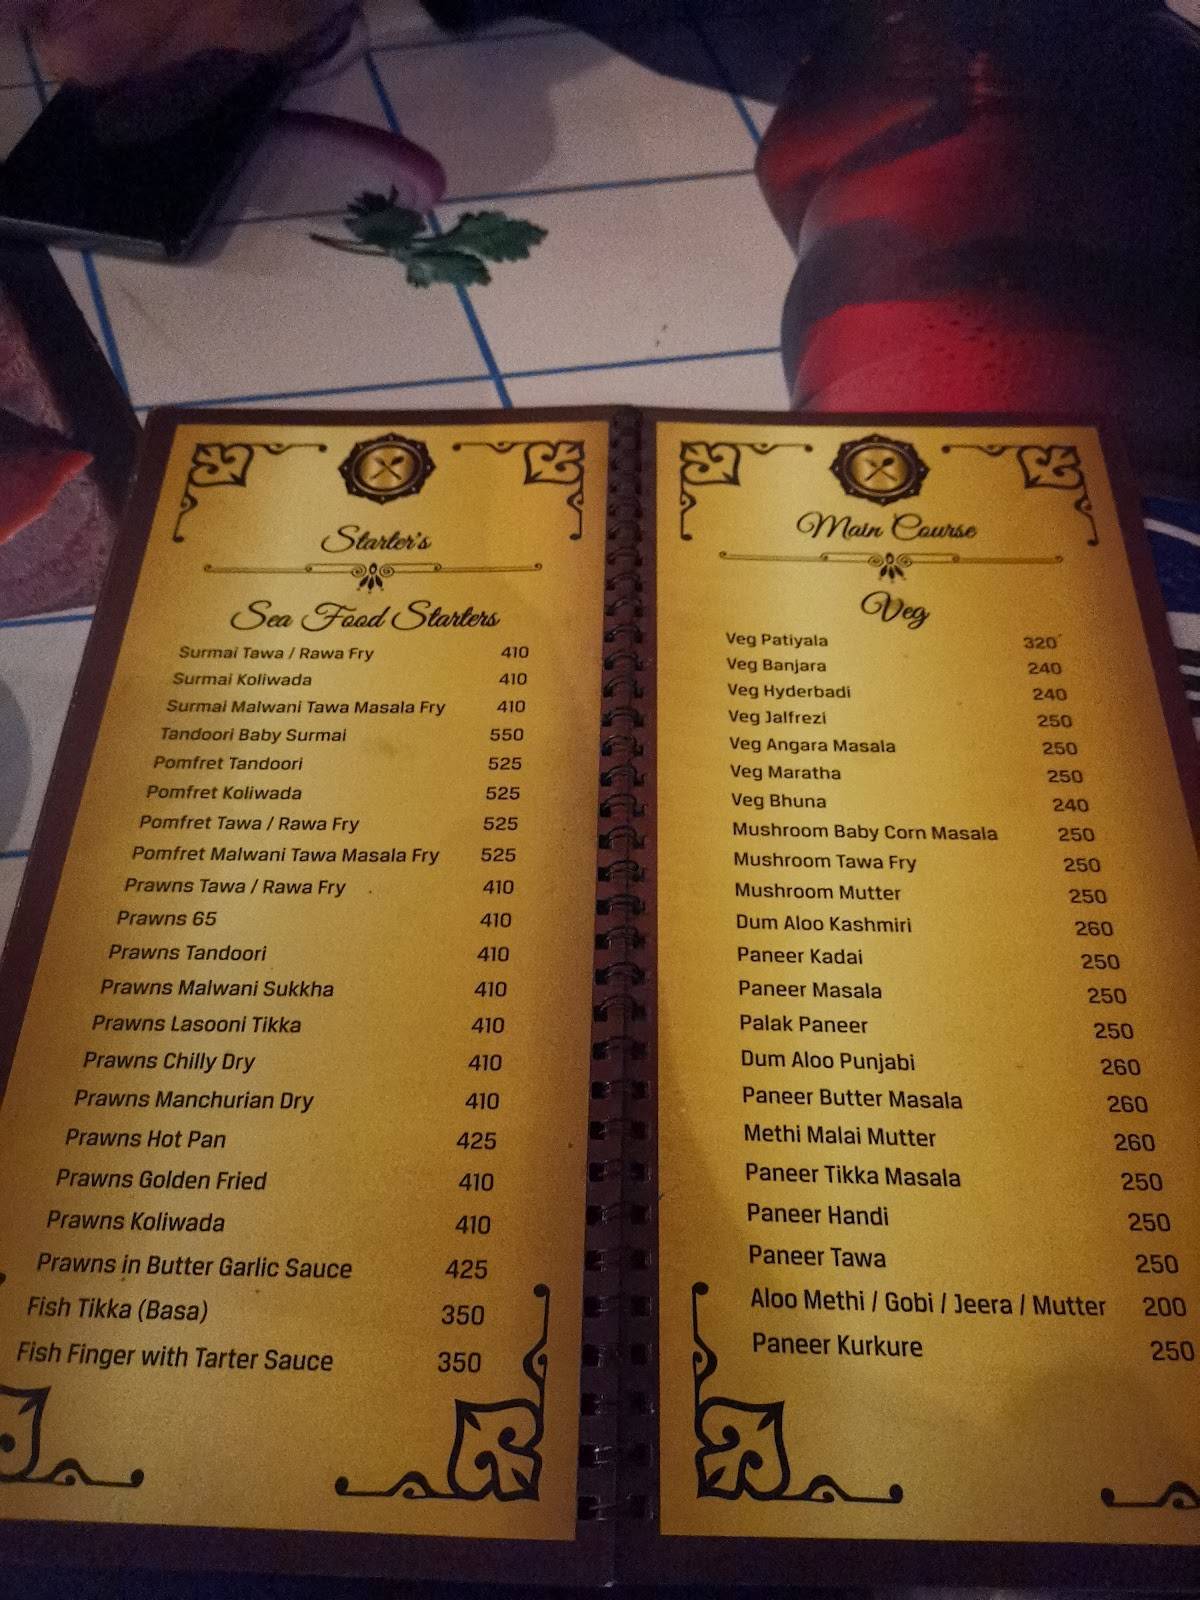 Starter's
Sea Food Starters
Surmai Tawa / Rawa Fry 410
Surmai Koliwada 410
Surmai Malwani Tawa Masala Fry 410
Tandoori Baby Surmai 550
Pomfret Tandoori 525
Pomfret Koliwada 525
Pomfret Tawa / Rawa Fry 525
Pomfret Malwani Tawa Masala Fry 525
Prawns Tawa / Rawa Fry 410
Prawns 65 410
Prawns Tandoori 410
Prawns Malwani Sukkha 410
Prawns Lasooni Tikka 410
Prawns Chilly Dry 410
Prawns Manchurian Dry 410
Prawns Hot Pan 425
Prawns Golden Fried 410
Prawns Koliwada 410
Prawns in Butter Garlic Sauce 425
Fish Tikka (Basa) 350
Fish Finger with Tarter Sauce 350
Main Course
Veg
Veg Patiyala 320
Veg Banjara 240
Veg Hyderbadi 240
Veg Jalfrezi 250
Veg Angara Masala 250
Veg Maratha 250
Veg Bhuna 240
Mushroom Baby Corn Masala 250
Mushroom Tawa Fry 250
Mushroom Mutter 250
Dum Aloo Kashmiri 260
Paneer Kadai 250
Paneer Masala 250
Palak Paneer 250
Dum Aloo Punjabi 260
Paneer Butter Masala 260
Methi Malai Mutter 260
Paneer Tikka Masala 250
Paneer Handi 250
Paneer Tawa 250
Aloo Methi / Gobi / Jeera / Mutter 200
Paneer Kurkure 250